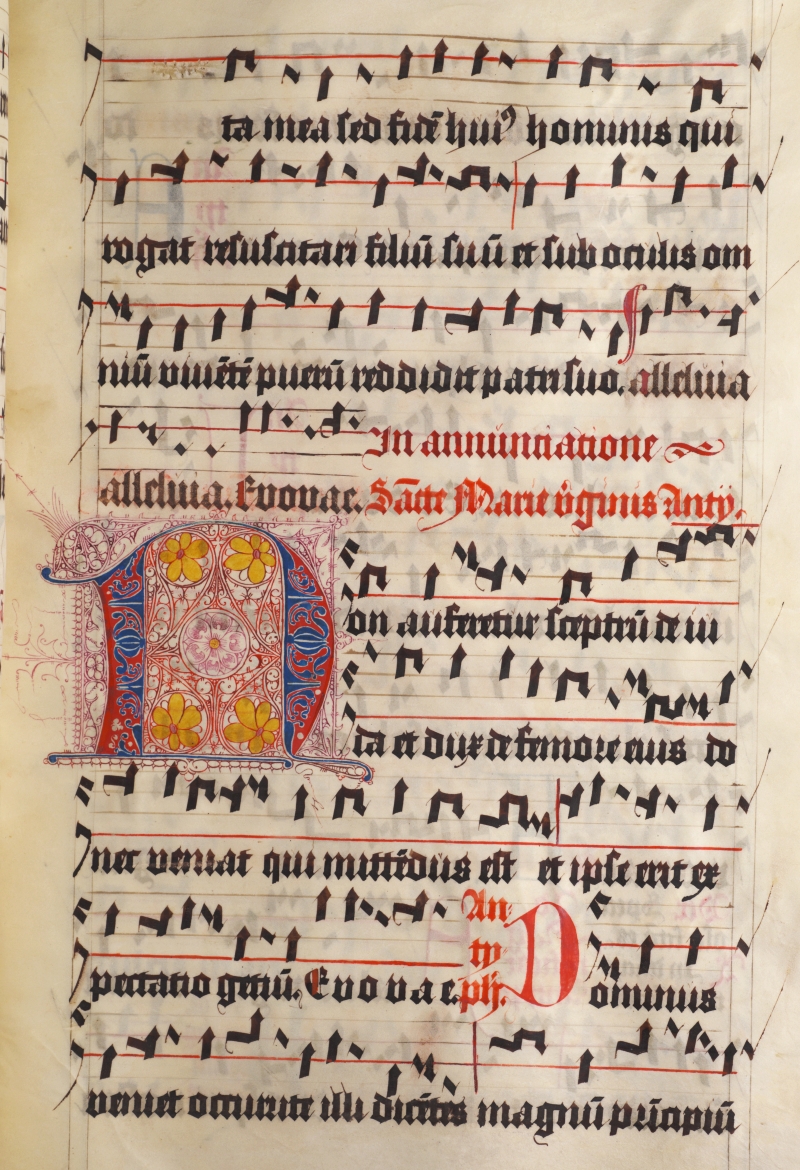 ta mea sed fidē huiꝰ hominis qui
rogat resuscitari filiū suū et sub oculis om
niū viuētē puerū reddidit patri suo. alleluia
In annūntiatione
alleluia. Evovae. Sācte Marie v̄ginis Anty.
Non auferetur sceptrū de iu
da et dux de femore eius do
nec veniat qui mittēdus est et ipse erit ex
pectatio gētiū. Evovae. Antyph. Dominus
veniet occurrite illi dicētes magnū prīcipiū